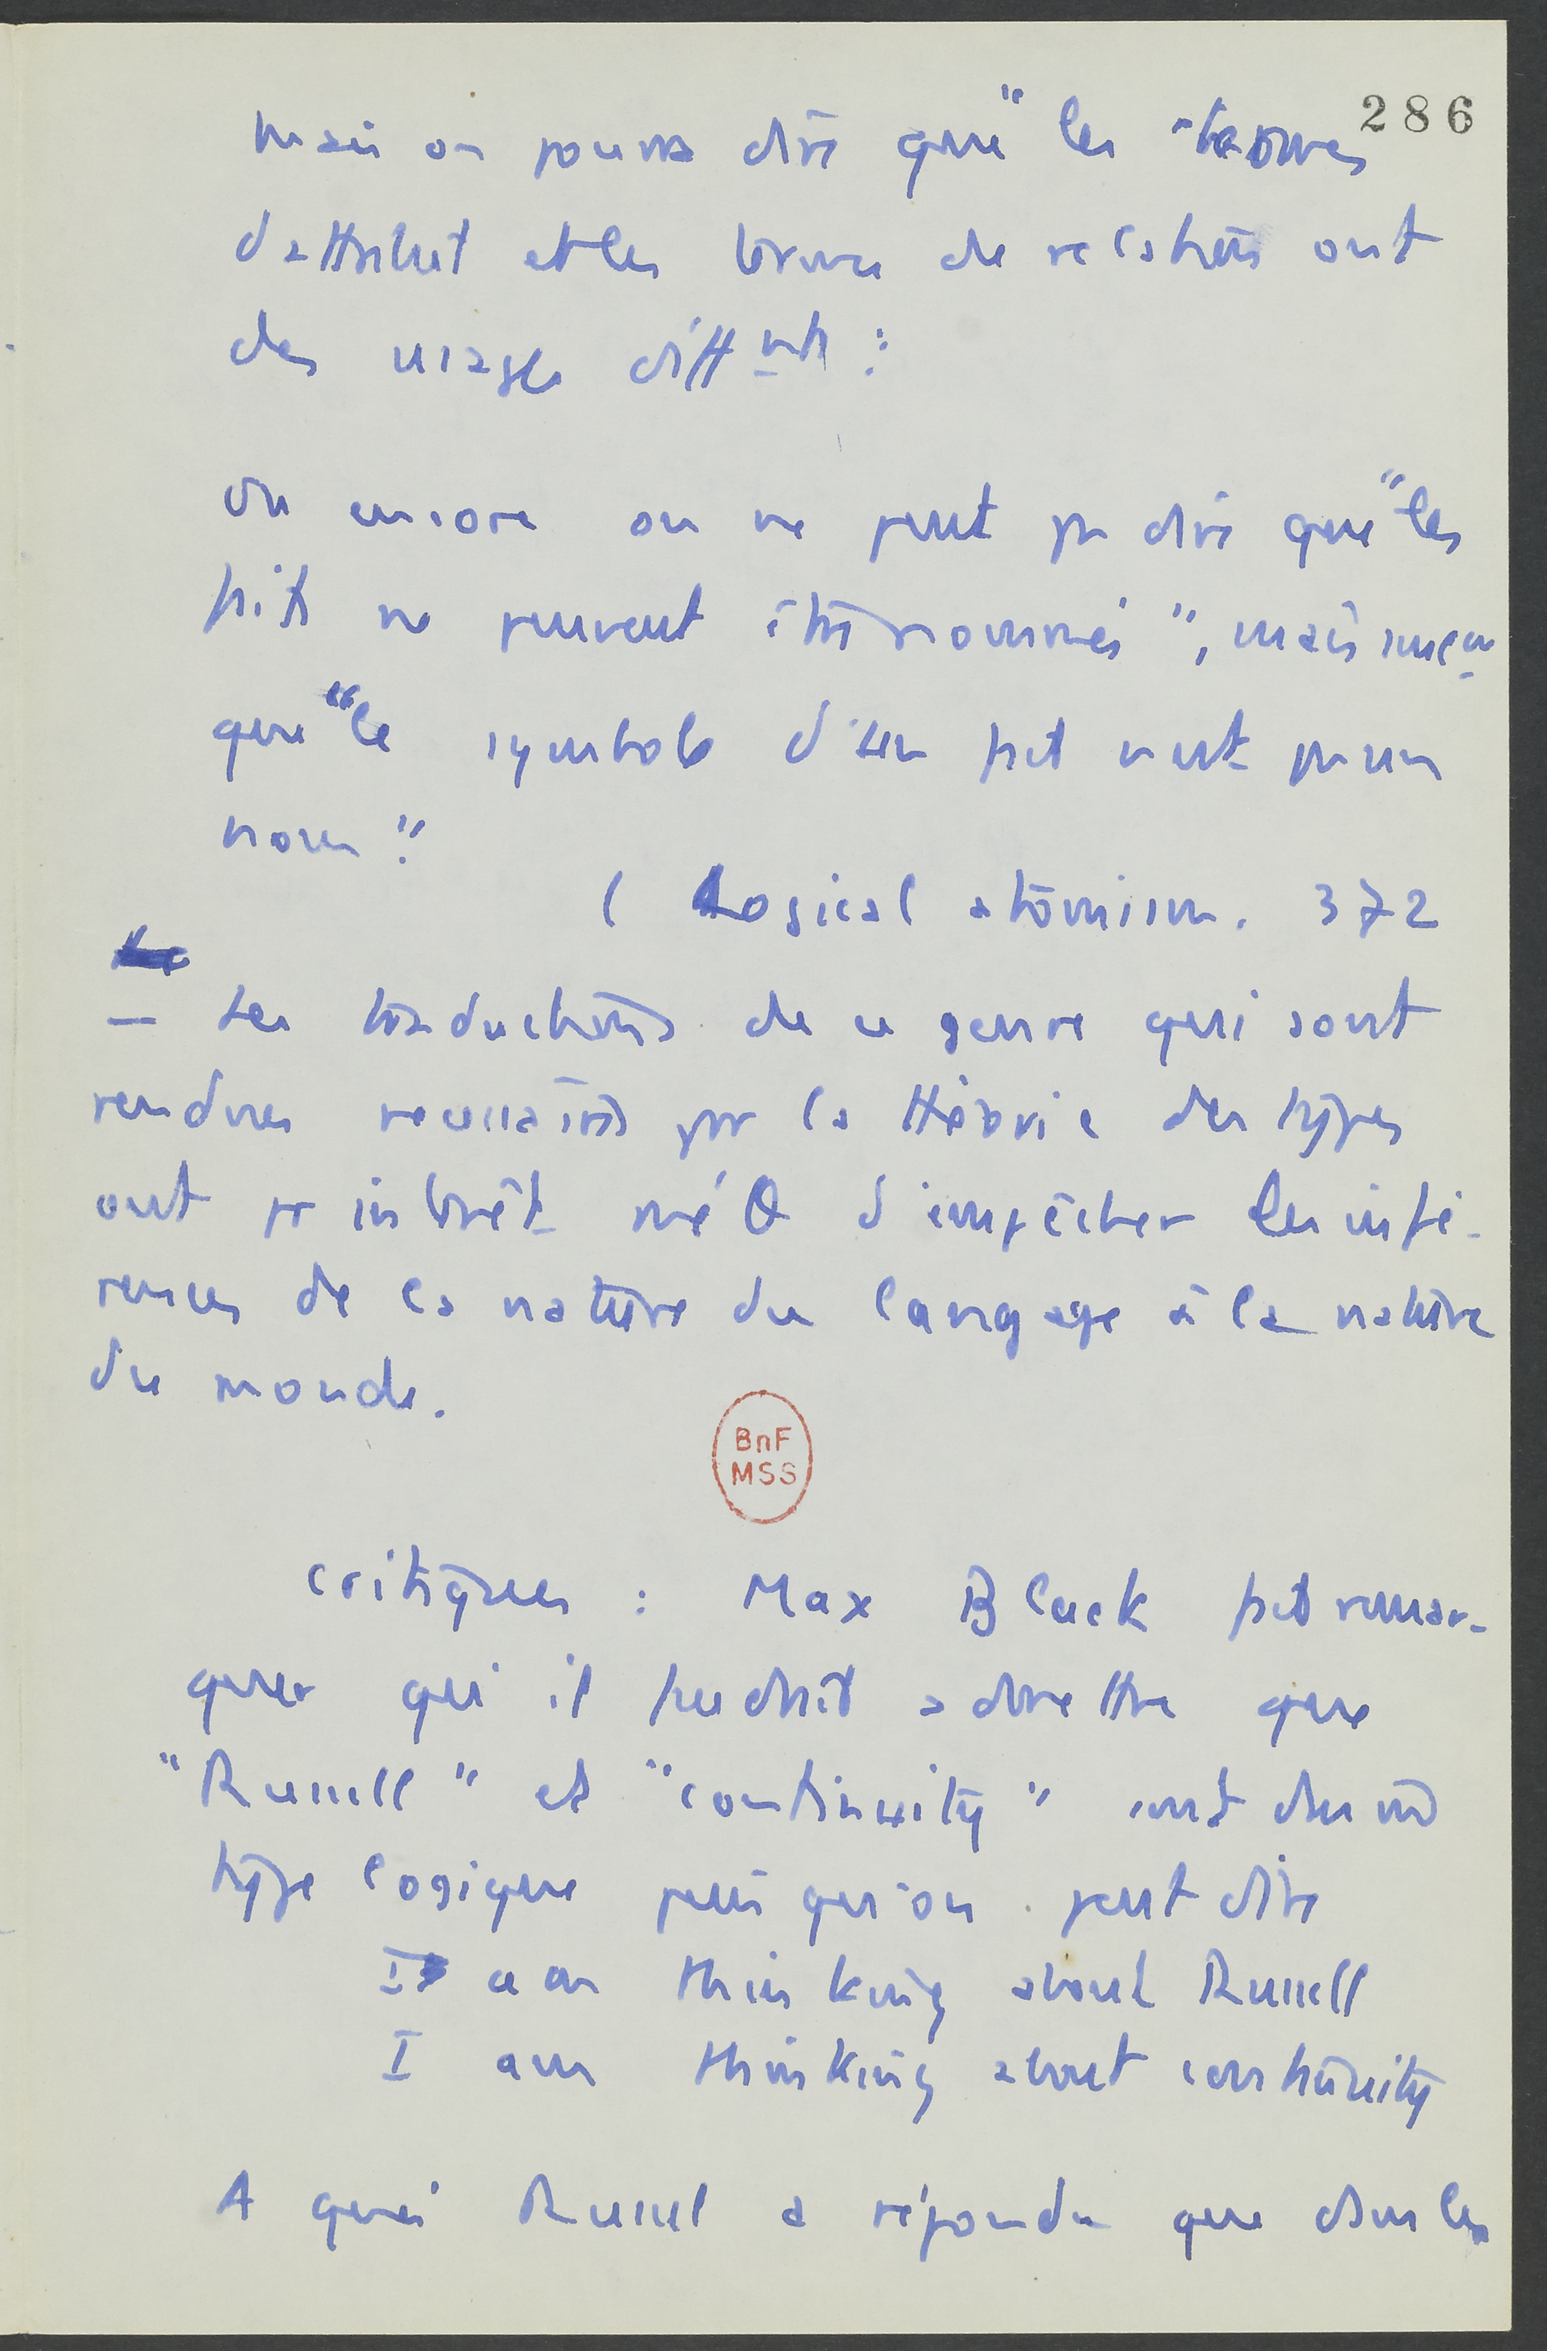 286
Mais on pourra dire que "les termes
d'attribut et les termes de relations ont
des usages diffts :
Ou encore on ne peut pas dire que "les
faits ne peuvent être nommés", mais seulemt
que "le symbole d'un fait n'est pas un
nom".
( Logical atomism. 372
— Les traductions de ce genre qui sont
rendues nécessaires par la théorie des types
ont pr intérêt d'empêcher les infé-
rences de la nature du langage à la nature
du monde.
BnF
MSS
Critiques : Max Black fait remar-
quer qu'il faudrait admettre que
"Russell" et "continuity" sont du m̄
type logique puisqu'on peut dire
I am thinking about Russell
I am thinking about continuity
A quoi Russel a répondu que dans les